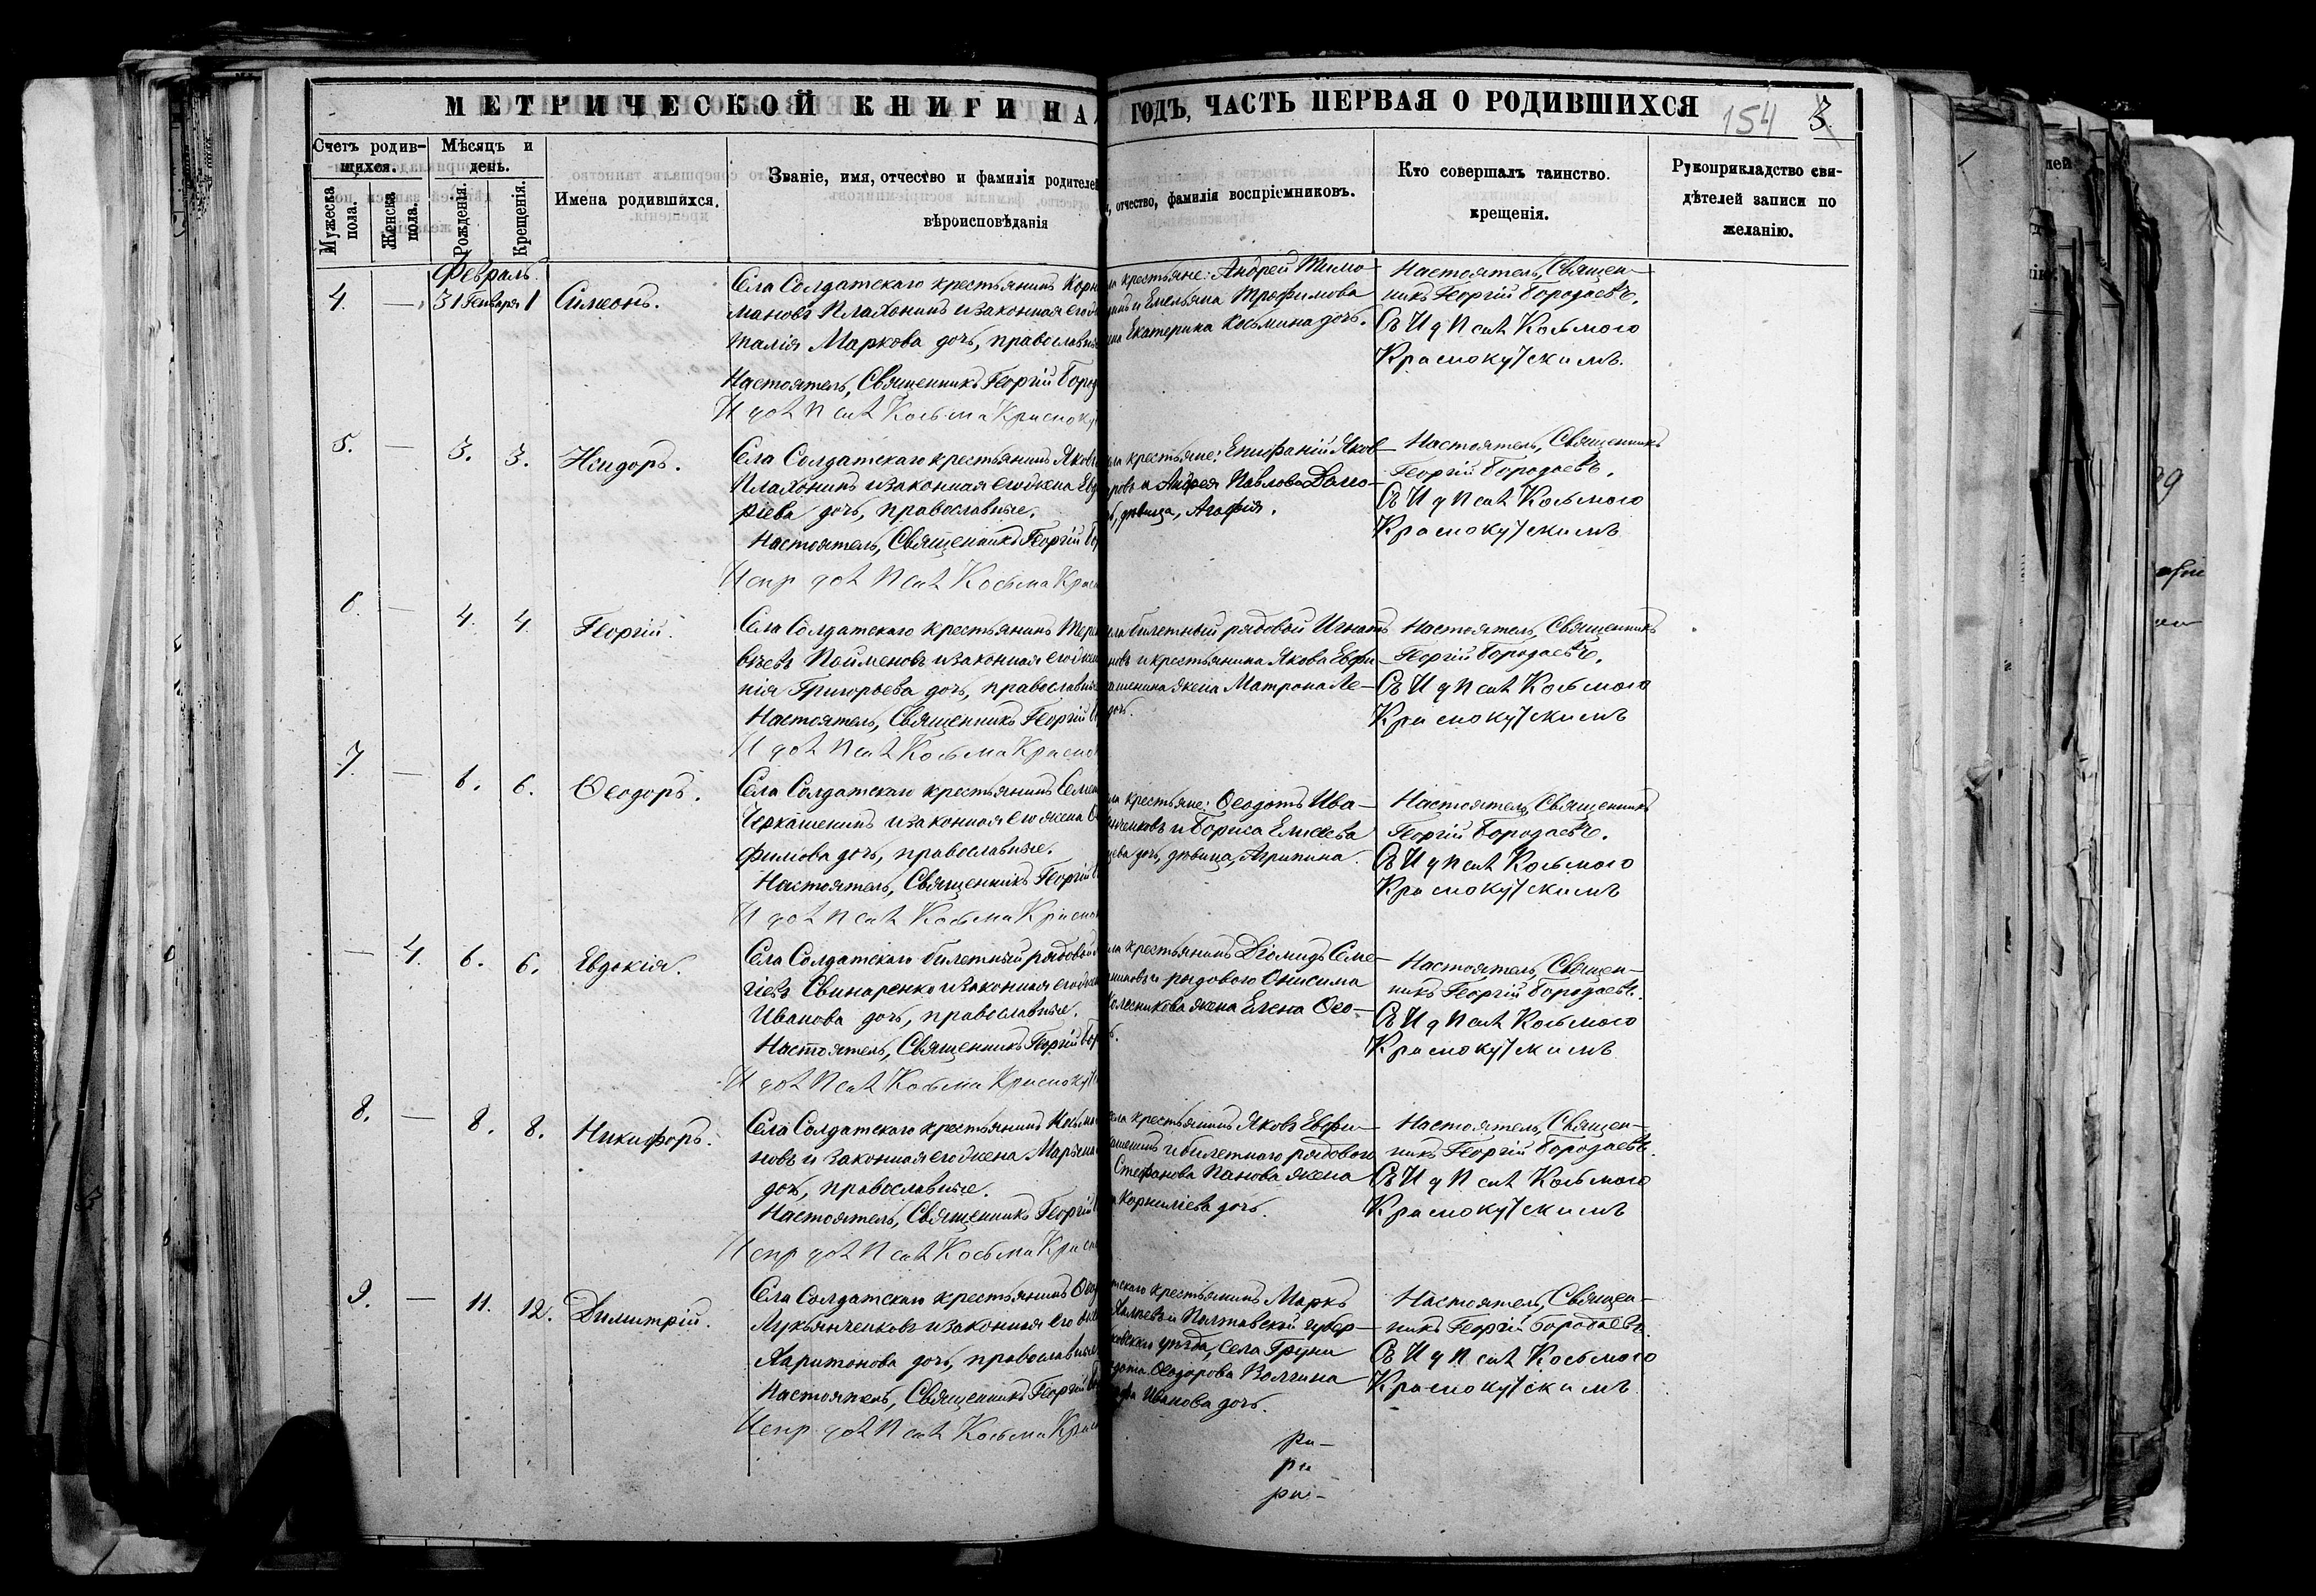 МЕТРИЧЕСКОЙ КНИГИ НА ГОДЪ, ЧАСТЬ ПЕРВАЯ О РОДИВШИХСЯ
154 3.
Счетъ родив-
шихся.
Мужеска пола.
Женска пола.
Мѣсяцъ и
день.
Рожденія.
Крещенія.
Имена родившихся.
Званіе, имя, отчество и фамилія родителе
вѣроисповѣданія
отчество, фамилія воспріемниковъ.
Кто совершалъ таинство.
крещенія.
Рукоприкладство сви-
дѣтелей записи по
желанію.
Февраль
4. — 31 Генваря 1 Симеонъ.
Села Солдатскаго крестьянинъ Корн
мановъ Плахонинъ и законная его
талія Маркова дочь, православн
Настоятель, Священникъ Георгій Бород
И д ❘ Псал Косьма Краснок
крестьяне: Андрей Тимо-
и Емельяна Трофимова
Екатерина Косьмина дочь.
Настоятель, Священ-
никъ Георгій Бородаевъ,
Съ И д Псал Косьмою
Краснокутскимъ.
5. — 3. 3. Исидоръ.
Села Солдатскаго крестьянинъ Яков
Плахонинъ и законная его жена Евд
ріева дочь, православные.
Настоятель, Священникъ Георгій Бо
Испр дол Псал Косьма Красн
крестьяне: Епифаній Яков-
и Андрея Павлова Дано-
дѣвица, Агафія.
Настоятель, Священникъ
Георгій Бородаевъ,
Съ И д Псал Косьмою
Краснокутскимъ
6. — 4. 4. Георгій.
Села Солдатскаго крестьянинъ Тере
Пойменовъ и законная его жен
нія Григорьева дочь, православны
Настоятель, Священникъ Георгій
И дол Псал Косьма Красно
билетный рядовой Игнатъ
и крестьянина Якова Евфи-
жена Матрона Ле-
дочь.
Настоятель, Священникъ
Георгій Бородаевъ,
Съ И д Псал Косьмою
Краснокутскимъ
7. — 6. 6. Ѳеодоръ.
Села Солдатскаго крестьянинъ Семе
Черкашенинъ и законная его жена
фимова дочь, православные.
Настоятель, Священникъ Георгій
И дол Псал Косьма Красно
крестьяне: Ѳеодотъ Ива-
и Бориса Елисеева
дочь, дѣвица, Агрипина.
Настоятель, Священникъ
Георгій Бородаевъ.
Съ И д Псал Косьмою
Краснокутскимъ
— 4. 6. 6. Евдокія.
Села Солдатскаго билетный рядовой
гіевъ Свинаренко и законная его
Иванова дочь, православные.
Настоятель, Священникъ Георгій Бор
И дол Псал Косьма Краснокут
крестьянинъ Діомидъ Семе-
и рядового Онисима
Колесникова жена Елена Ѳео-
Настоятель, Священ-
никъ Георгій Бородаевъ.
Съ И д Псал Косьмою
Краснокутскимъ
8. — 8. 8. Никифоръ.
Села Солдатскаго крестьянинъ Косьм
новъ и законная его жена Марѳа
дочь, православные.
Настоятель, Священникъ Георгій
Испр дол Псал Косьма Красн
крестьянинъ Яковъ Евфи-
и билетнаго рядового
Стефанова Панова жена
Корниліева дочь.
Настоятель, Священ-
никъ Георгій Бородаевъ.
Съ И д Псал Косьмою
Краснокутскимъ
9. — 11. 12. Димитрій.
Села Солдатскаго крестьянинъ Ѳео
Лукьянченковъ и законная его
Харитонова дочь, православные
Настоятель, Священникъ Георгій
Испр дол Псал Косьма Красн
крестьянинъ Маркъ
и Полтавской губер-
уѣзда, села Груни
Ѳеодорова Волгина
Иванова дочь.
Настоятель, Священ-
никъ Георгій Бородаевъ.
Съ И д Псал Косьмою
Краснокутскимъ
ри-
ри
ри-